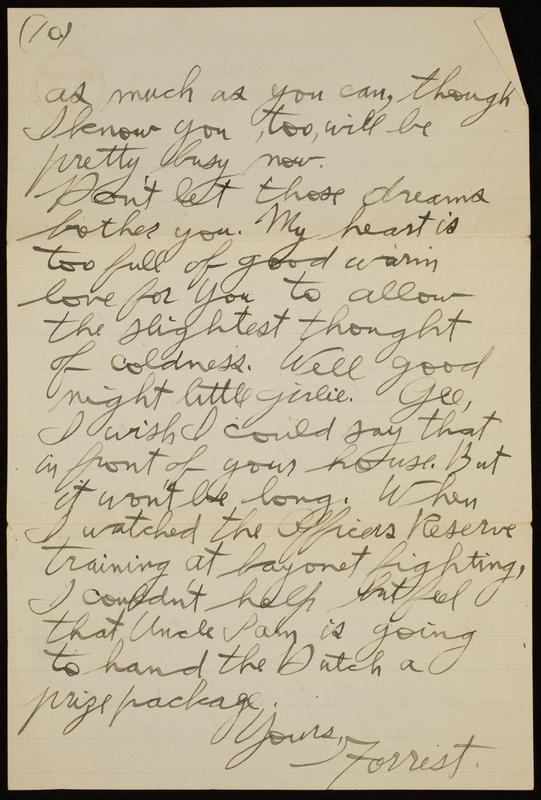 (10)
as much as you can, though
I know you, too, will be
pretty busy now.
Don't let those dreams
bother you. My heart is
too full of good warm
love for you to allow
the slightest thought
of coldness. Well good
night little girlie. Gee,
I wish I could say that
in front of your house. But
it won't be long. When
I watched the Officers Reserve
training at bayonet fighting,
I couldn't help but feel
that Uncle Sam is going
to hand the Dutch a
prize package.
Yours,
Forrest.